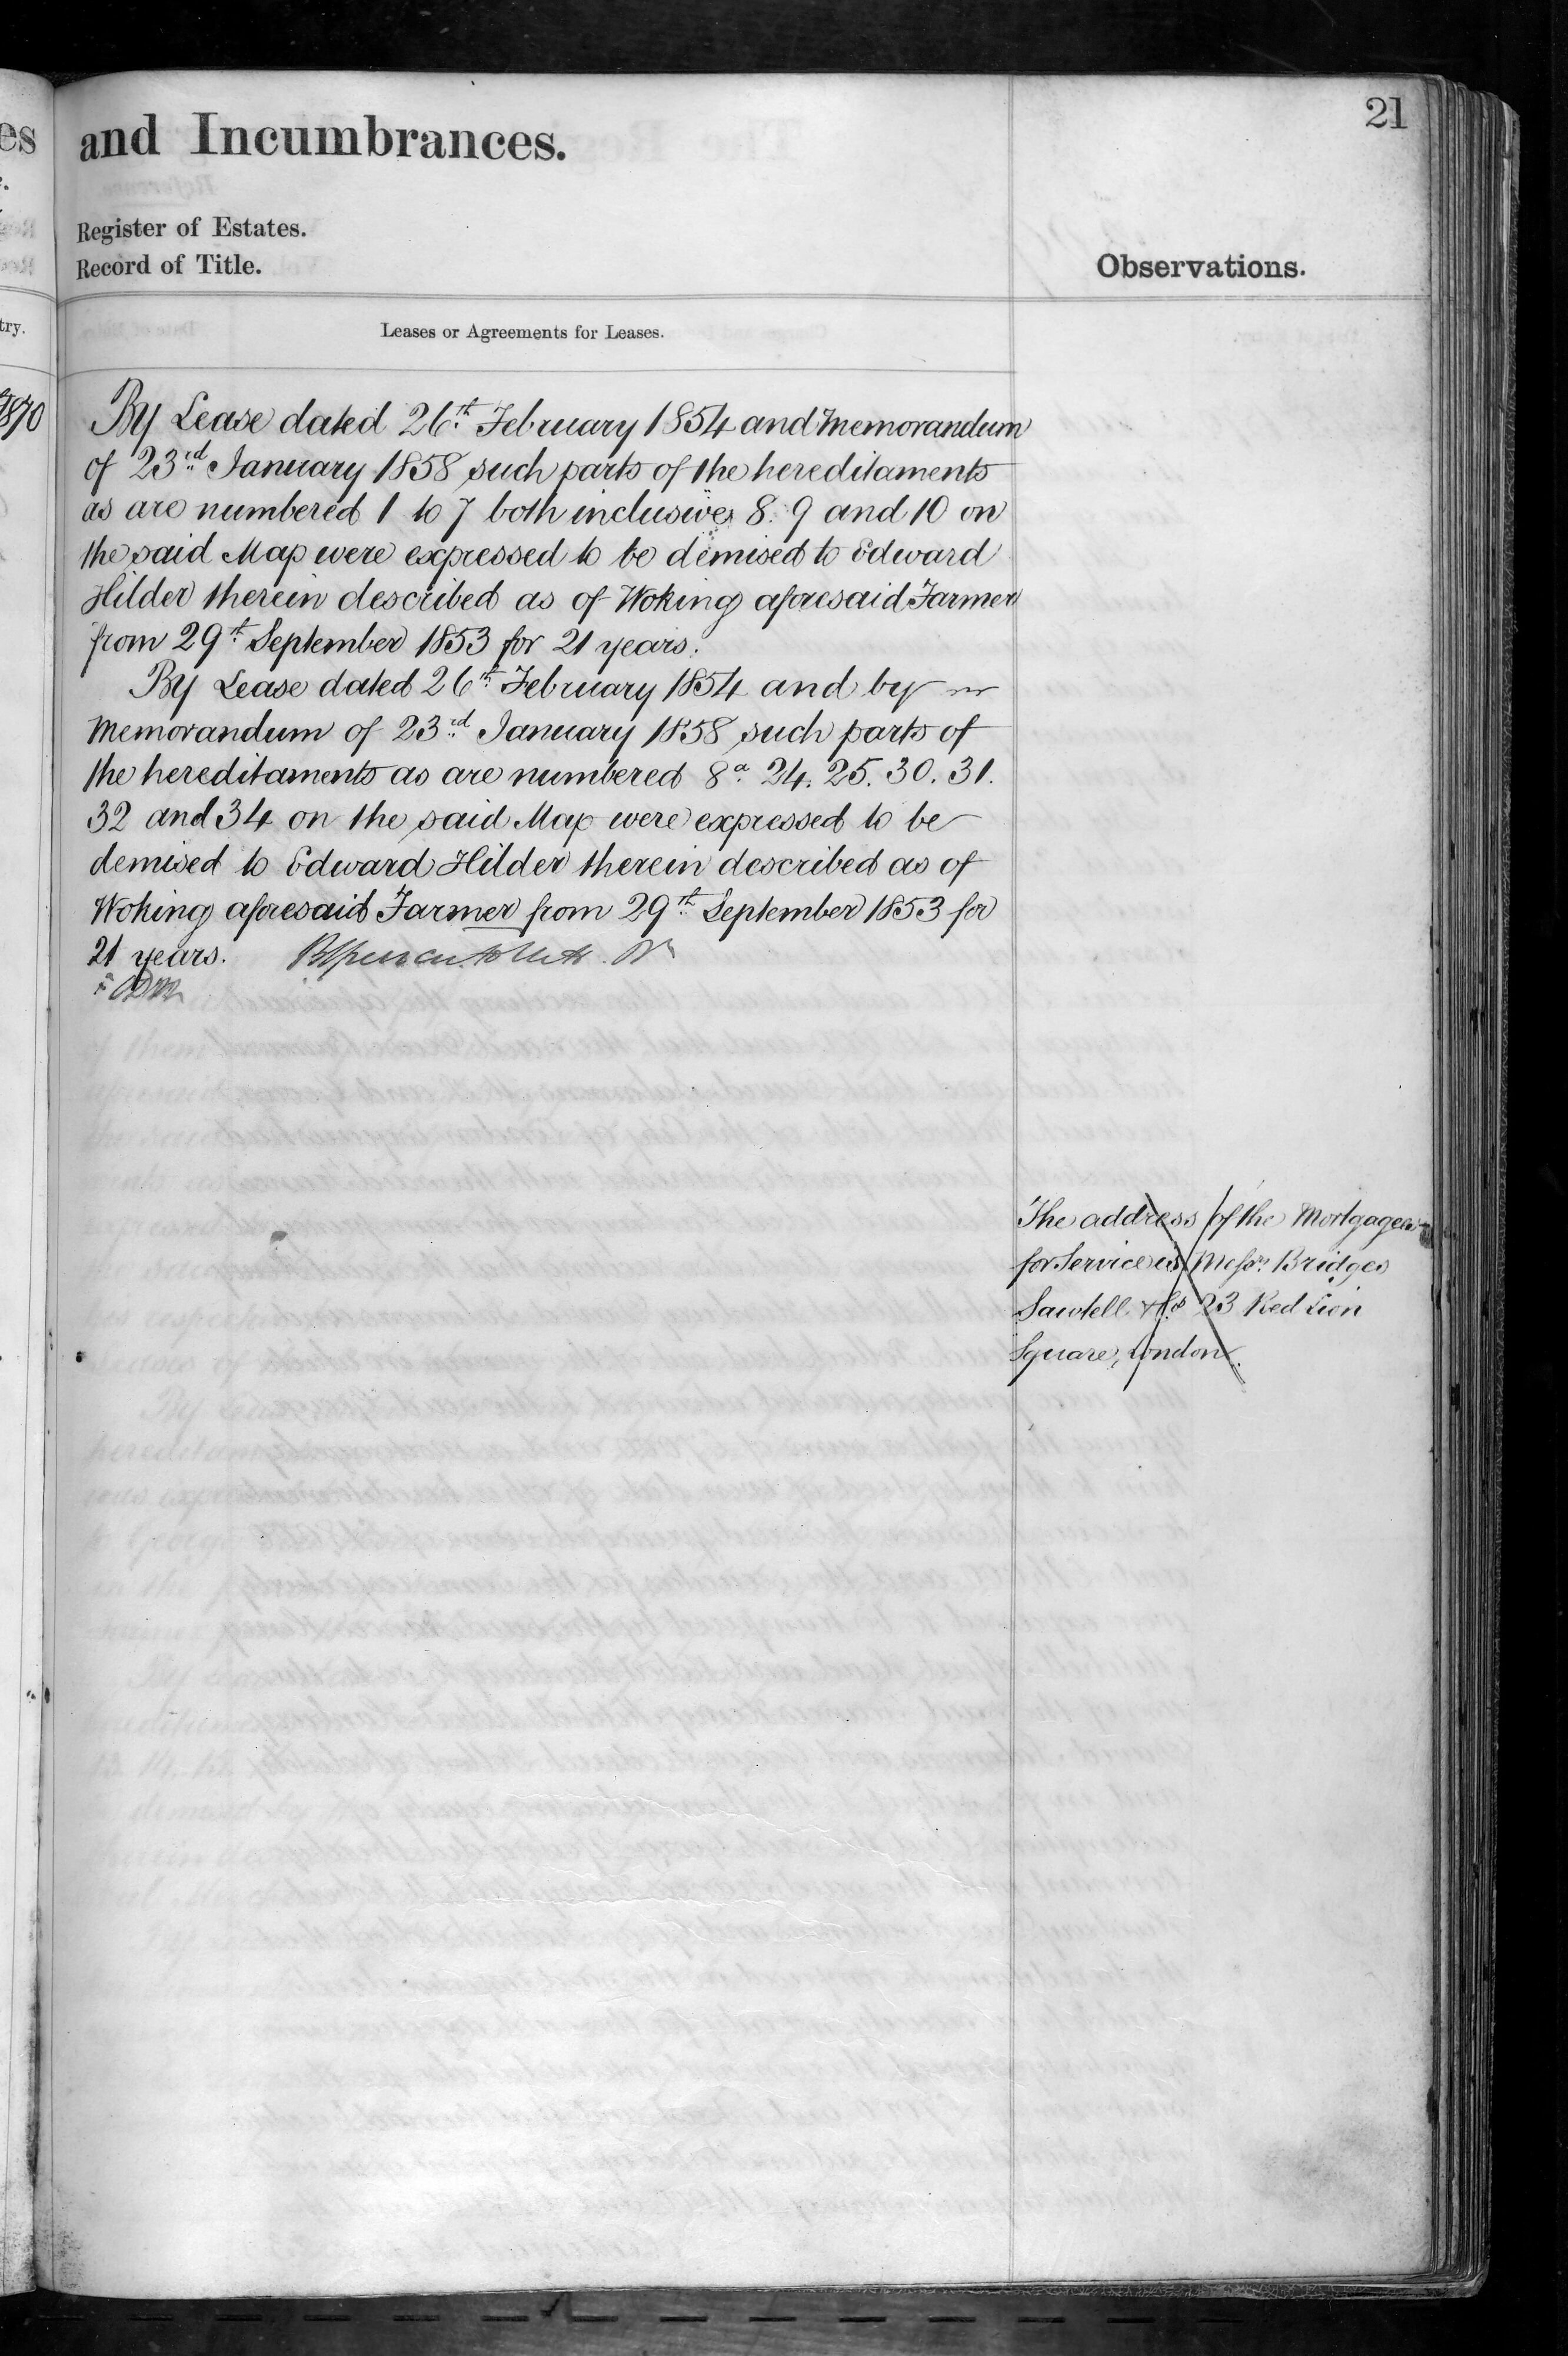 es
and Incumbrances.
21
Register of Estates.
Record of Title.
Observations.
try.
Leases or Agreements for Leases.
1870
By Lease dated 26th February 1854 and Memorandum
of 23rd January 1858 such parts of the hereditaments
as are numbered 1 to 7 both inclusive, 8. 9 and 10 on
the said Map were expressed to be demised to Edward
Hilder therein described as of Woking aforesaid Farmer
from 29th September 1853 for 21 years.
By Lease dated 26th February 1854 and by
Memorandum of 23rd January 1858 such parts of
the hereditaments as are numbered 8a. 24. 25. 30. 31.
32 and 34 on the said Map were expressed to be
demised to Edward Hilder therein described as of
Woking aforesaid Farmer from 29th September 1853 for
21 years.
The address of the Mortgagees
for Service is Messrs. Bridges
Sawtell & Co 23 Red Lion
Square, London.